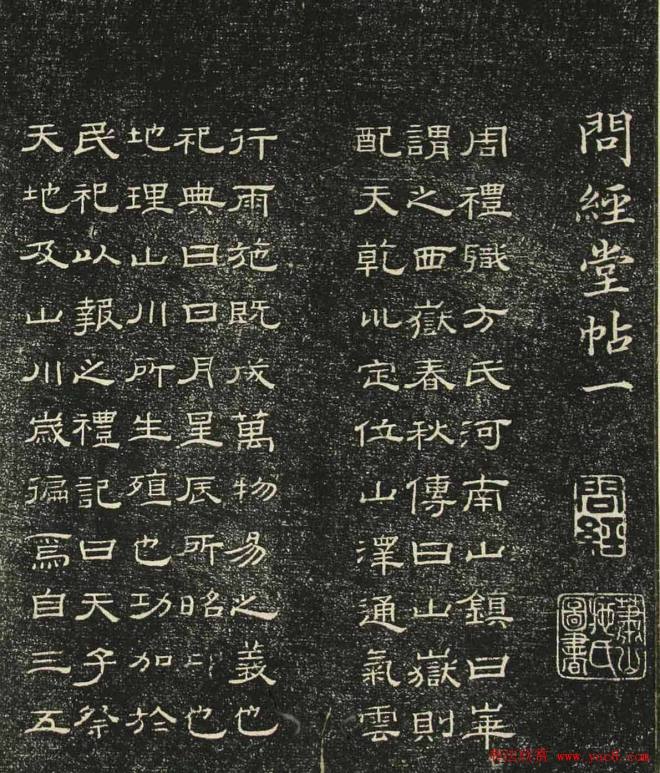 問經堂帖一
問經
蕭山
施氏
圖書
周禮職方氏河南山鎮曰崋
謂之西嶽春秋傳曰山嶽則
配天乾巛定位山澤通氣雲
行雨施既成萬物易之義也
祀典曰日月星辰所昭卬也
地理山川所生殖也功加於
民祀以報之禮記曰天子祭
天地及山川歲徧焉自三五
书法欣赏 www.yac8.com